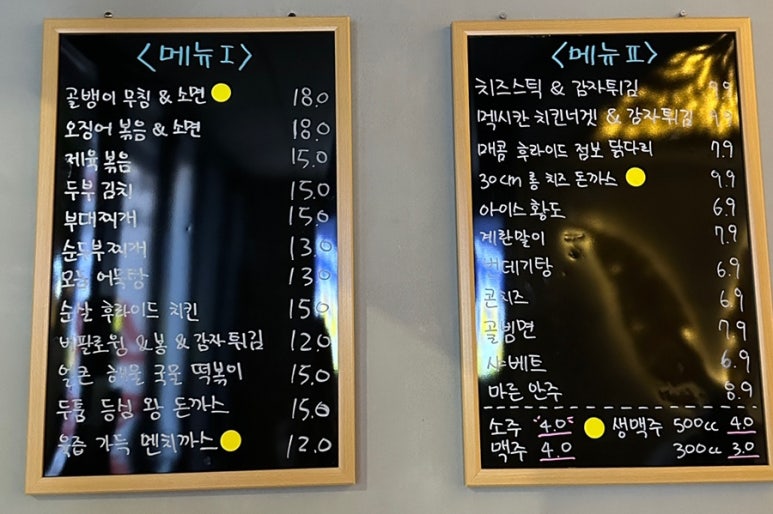 <메뉴 I>
골뱅이 무침 & 소면 18.0
오징어 볶음 & 소면 18.0
제육볶음 15.0
두부 김치 15.0
부대찌개 15.0
순두부찌개 13.0
모듬 어묵탕 13.0
순살 후라이드 치킨 15.0
버팔로윙 & 봉 & 감자튀김 12.0
얼큰 해물 국물 떡볶이 15.0
두툼 등심 왕 돈까스 15.0
육즙 가득 멘치까스 12.0
<메뉴 II>
치즈스틱 & 감자튀김 9.9
멕시칸 치킨너겟 & 감자튀김
매콤 후라이드 점보 닭다리 7.9
30cm 롱 치즈 돈까스 9.9
아이스 황도 6.9
계란말이 7.9
번데기탕 6.9
콘치즈 6.9
골빔면 7.9
샤베트 6.9
마른 안주 8.9
소주 "4.0" 생맥주 500cc 4.0
맥주 4.0 300cc 3.0